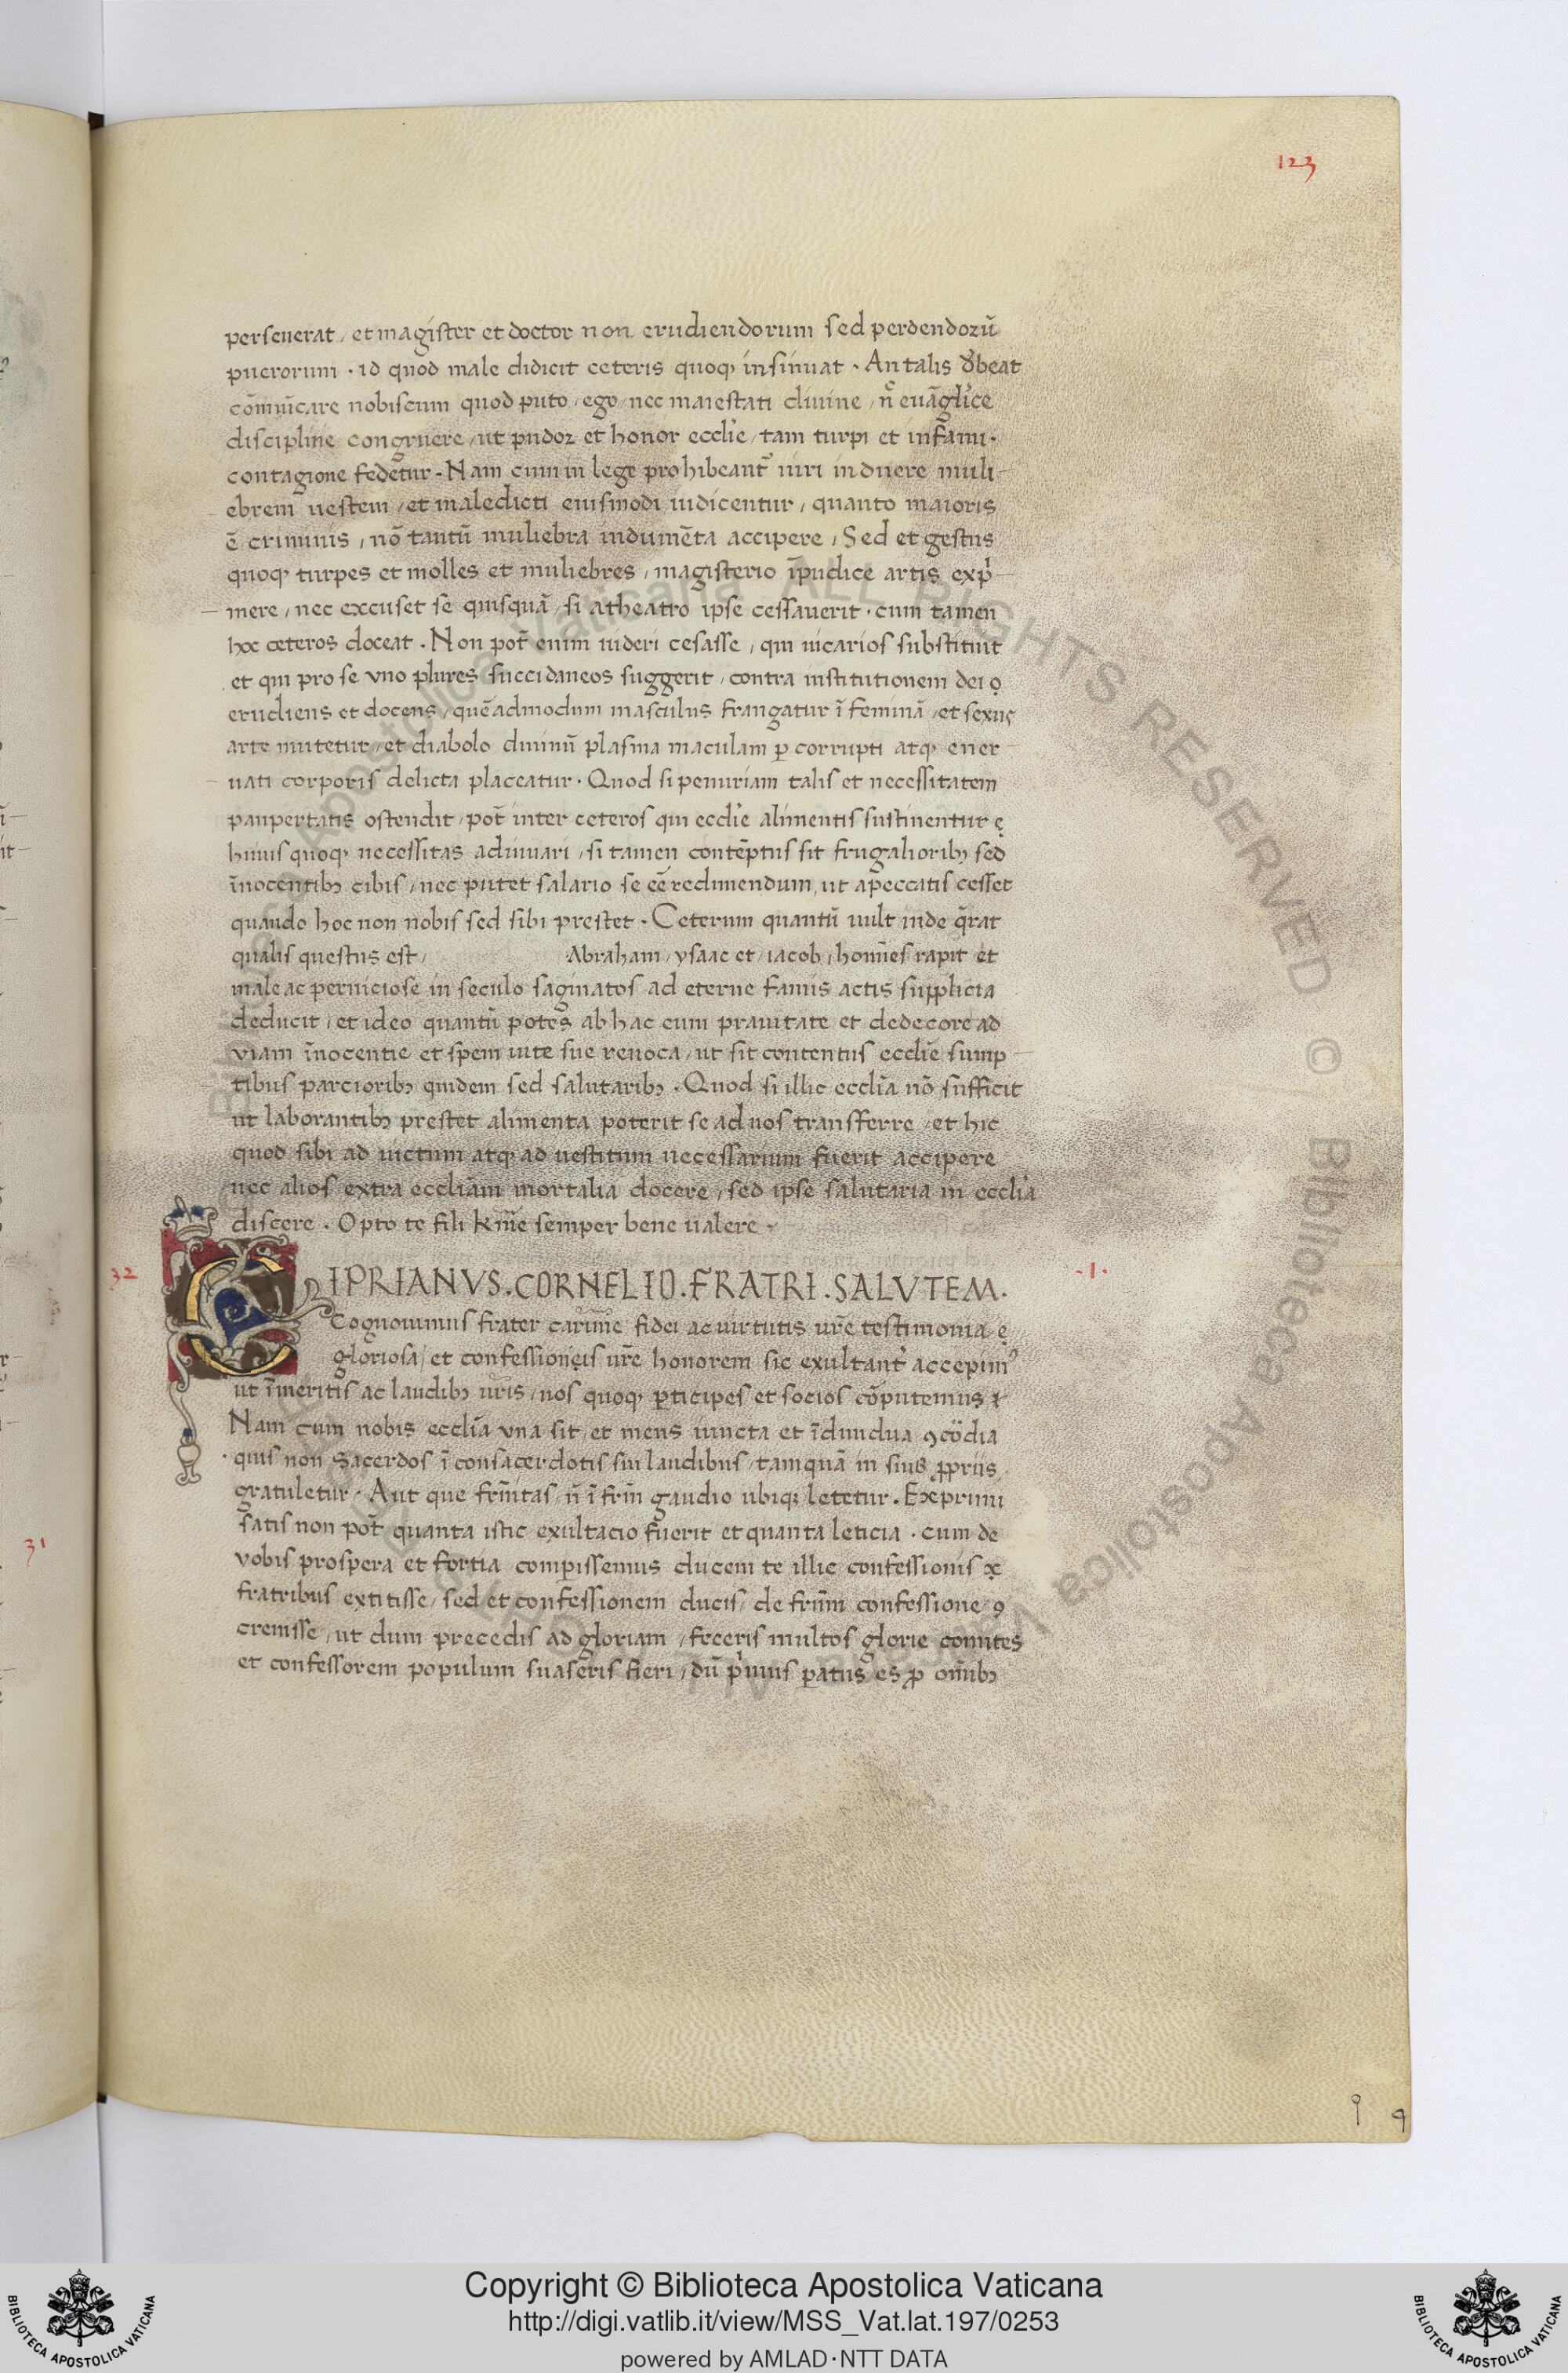 123
perseuerat / et magister et doctor non erudiendorum sed perdendoꝝ̄
puerorum · id quod male didicit ceteris quoqꝫ insinuat · An talis d̓beat
cōmūcare nobiscum quod puto / ego / nec maiestati diuine / n̊ euāgl̓ice
discipline congruere / ut pudor et honor eccl̓ie / tam turpi et infami ·
contagione fedetur · Nam cum in lege prohibeant᷑ uiri induere muli-
ebrem uestem / et maledicti eiusmodi iudicentur / quanto maioris
ē criminis / nō tantū muliebra indumēta accipere / Sed et gestus
quoqꝫ turpes et molles et muliebres / magisterio īpudice artis exp̓-
mere / nec excuset se quisquā / si atheatro ipse cessauerit · cum tamen
hoc ceteros doceat · Non pot̄ enim uideri cesasse / qui uicarios substituit
et qui pro se vno plures succidaneos suggerit / contra institutionem dei
erudiens et docens / quēadmodum masculus frangatur ī feminā / et sexus
arte mutetur / et diabolo diuinū plasma maculam ꝑ corrupti atqꝫ ener-
uati corporis delicta placeatur · Quod si penuriam talis et necessitatem
paupertatis ostendit / pot̄ inter ceteros qui eccl̓ie alimentis sustinentur
huius quoqꝫ necessitas adiuuari / si tamen contēptus sit frugalioribꝫ sed
īnocentibꝫ cibis / nec putet salario se eē redimendum / ut apeccatis cesset
quando hoc non nobis sed sibi prestet · Ceterum quantū uult inde q̄rat
qualis questus est / Abraham / ysaac et / iacob / homēs rapit et
male ac perniciose in seculo saginatos ad eterne famis actis supplicia
deducit / et ideo quantū potes ab hac eum prauitate et dedecore ad
viam īnocentie et spem uite sue reuoca / ut sit contentus eccl̄ie sump-
tibus parcioribꝫ quidem sed salutaribꝫ · Quod si illic eccl̄ia nō sufficit
ut laborantibꝫ prestet alimenta poterit se ad nos transferre / et hic
quod sibi ad uictum atqꝫ ad uestitum necessarium fuerit accipere
nec alios extra eccl̄iam mortalia docere / sed ipse salutaria in eccl̓ia
discere · Opto te fili kr̄me semper bene ualere ·
32
CIPRIANVS . CORNELIO . FRATRI . SALVTEM .
· 1 ·
Cognouimus frater carīme fidei ac uirtutis ur̄e testimonia
gloriosa / et confessionęis ur̄e honorem sic exultant᷑ accepimꝰ
ut īmeritis ac laudibꝫ ur̄is / nos quoqꝫ ꝑticipes et socios cōputemus
Nam cum nobis eccl̄ia vna sit / et mens iuncta et īdiuidua ꝯcōdia
quis non sacerdos ī consacerdotis sui laudibus / tamquā in suis ꝓpriis
gratuletur · Aut que fr̄nitas / n̄ ī fr̄m gaudio ubiqꝫ letetur · Exprimi
satis non pot̄ quanta istic exultacio fuerit et quanta leticia · cum de
vobis prospera et fortia comperissemus ducem te illic confessionis
fratribus extitisse / sed et confessionem ducis / de fr̄um confessione ꝯ
creuisse / ut dum precedis ad gloriam / feceris multos glorie comites
et confessorem populum suaseris fieri / dū p̓mus ꝑatus es ꝓ omībꝫ
31
Copyright © Biblioteca Apostolica Vaticana
http://digi.vatlib.it/view/MSS_Vat.lat.197/0253
powered by AMLAD·NTT DATA
BIBLIOTECA APOSTOLICA VATICANA
BIBLIOTECA APOSTOLICA VATICANA